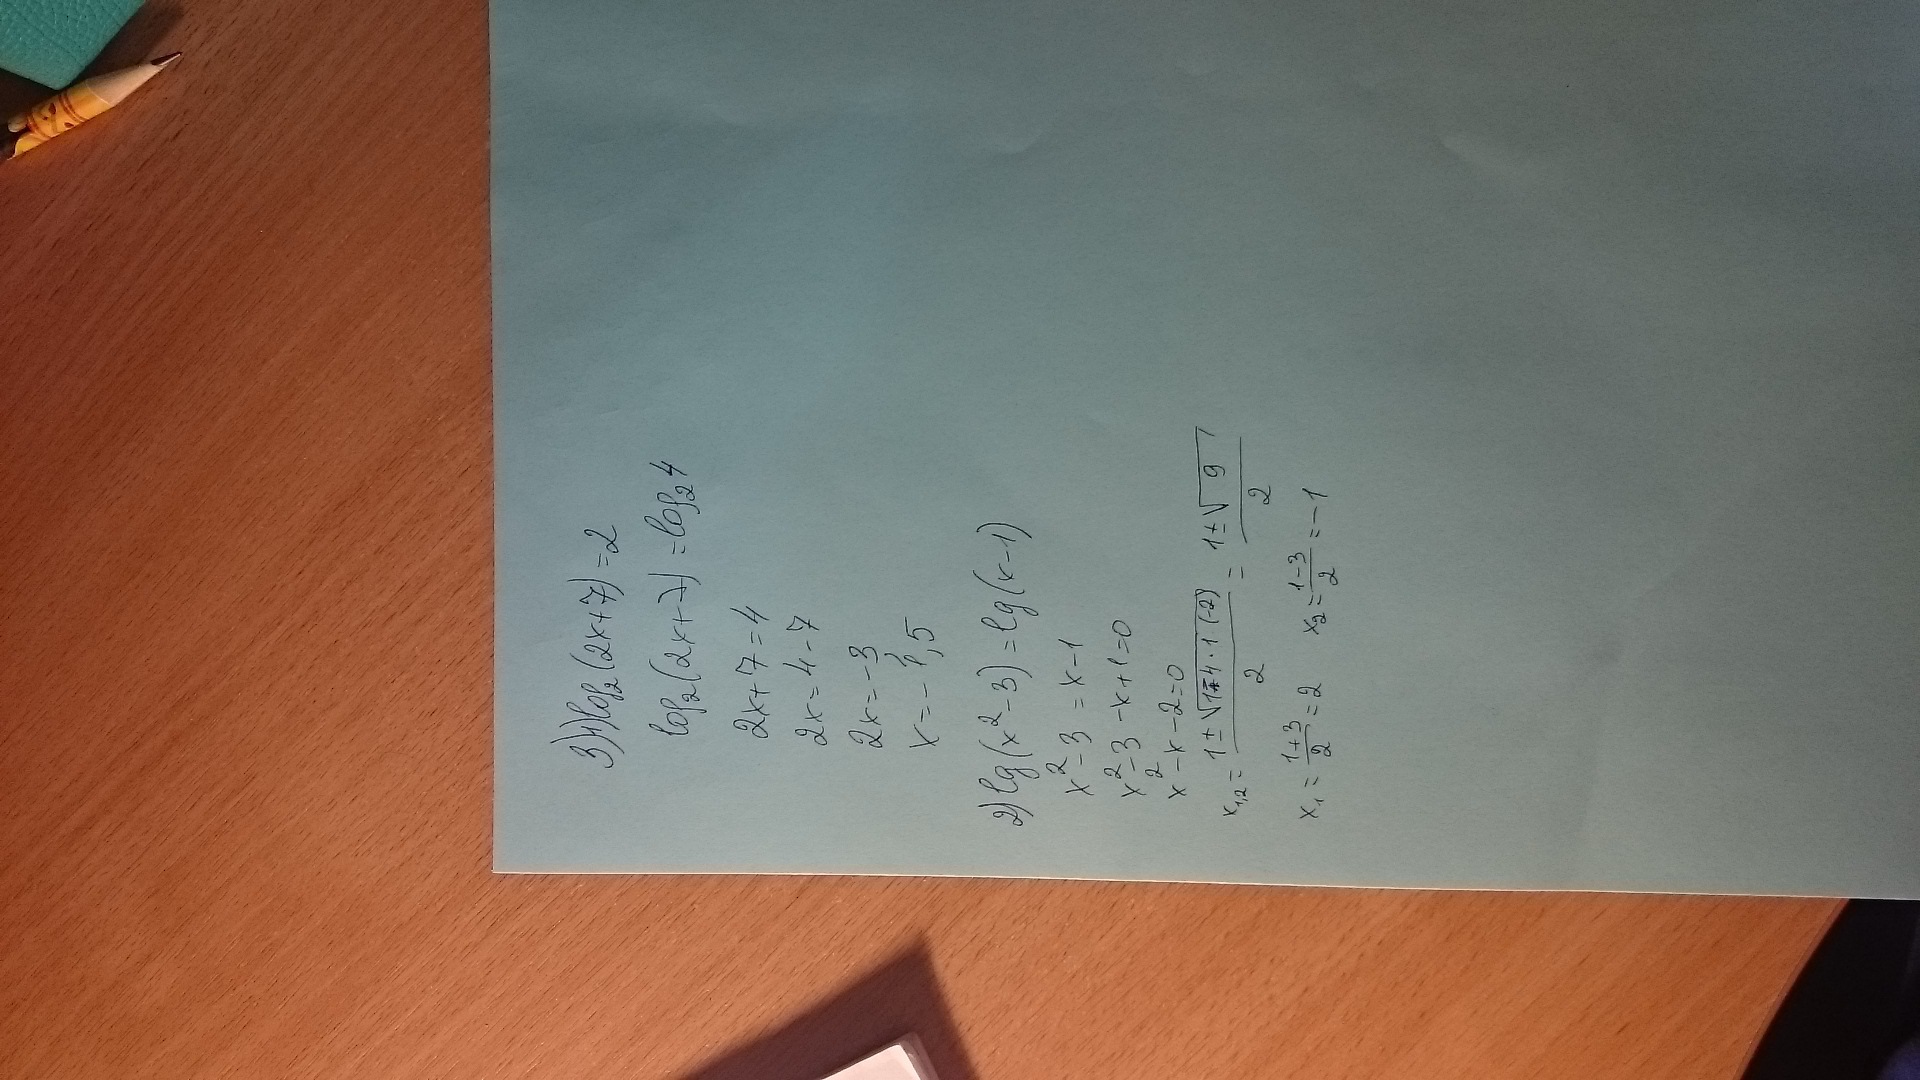 3) 1) log₂(2x+7)=2
log₂(2x+7)=log₂4
2x+7=4
2x=4-7
2x=-3
x=-1,5
2) lg(x²-3)=lg(x-1)
x²-3=x-1
x²-3-x+1=0
x²-x-2=0
x₁,₂=(1±√(1-4·1(-2)))/2=(1±√9)/2
x₁=(1+3)/2=2 x₂=(1-3)/2=-1